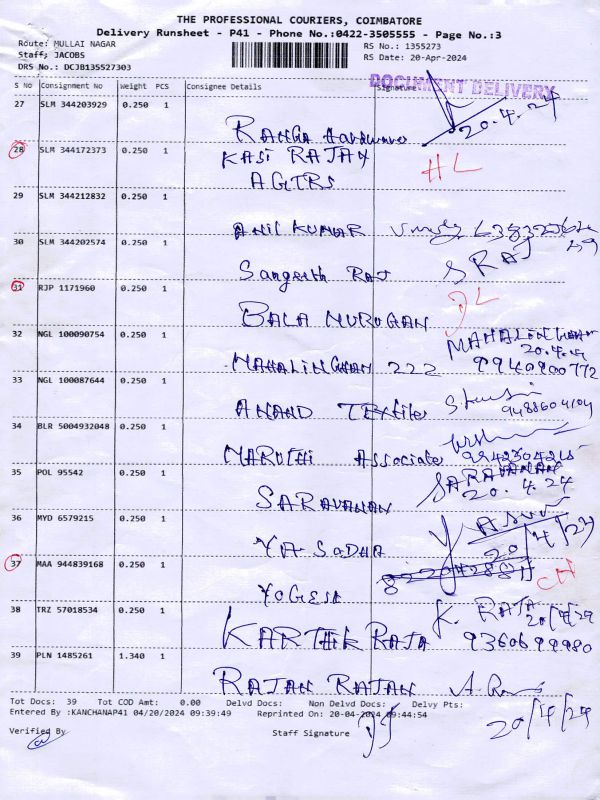 THE PROFESSIONAL COURIERS, COIMBATORE
Delivery Runsheet - P41 - Phone No.:0422-3505555 - Page No.:3
Route: MULLAI NAGAR
Staff; JACOBS
DRS No.: DCJB135527303
RS No.: 1355273
RS Date: 20-Apr-2024
DOCUMENT DELIVERY
S No Consignment No Weight PCS Consignee Details Signature
27 SLM 344203929 0.250 1
RANGA Hardwares 20.4.24
28 SLM 344172373 0.250 1
KASI RAJAN HL
AGTRS
29 SLM 344212832 0.250 1
ANIL KUMAR
30 SLM 344202574 0.250 1
Sangeeth Raj SRAJ
31 RJP 1171960 0.250 1
BALA MURUGAN DL
32 NGL 100090754 0.250 1
MAHALINGHAM 222 MAHALINGHAM
20.4.24
9940900772
33 NGL 100087644 0.250 1
ANAND TEXtiles 9488604104
34 BLR 5004932048 0.250 1
MARUTHI Associates 9942304215
35 POL 95542 0.250 1
SARAVANAN SARAVANAN
20.4.24
36 MYD 6579215 0.250 1
YA SODHA 20/4/24
37 MAA 944839168 0.250 1
YOGESH CH
38 TRZ 57018534 0.250 1
KARTHIK RAJA K. RAJA
20/4/24
9360699980
39 PLN 1485261 1.340 1
RAJAN RAJAN
20/4/24
Tot Docs: 39 Tot COD Amt: 0.00 Delvd Docs: Non Delvd Docs: Delvy Pts:
Entered By :KANCHANAP41 04/20/2024 09:39:49 Reprinted On: 20-04-2024 09:44:54
Verified By Staff Signature